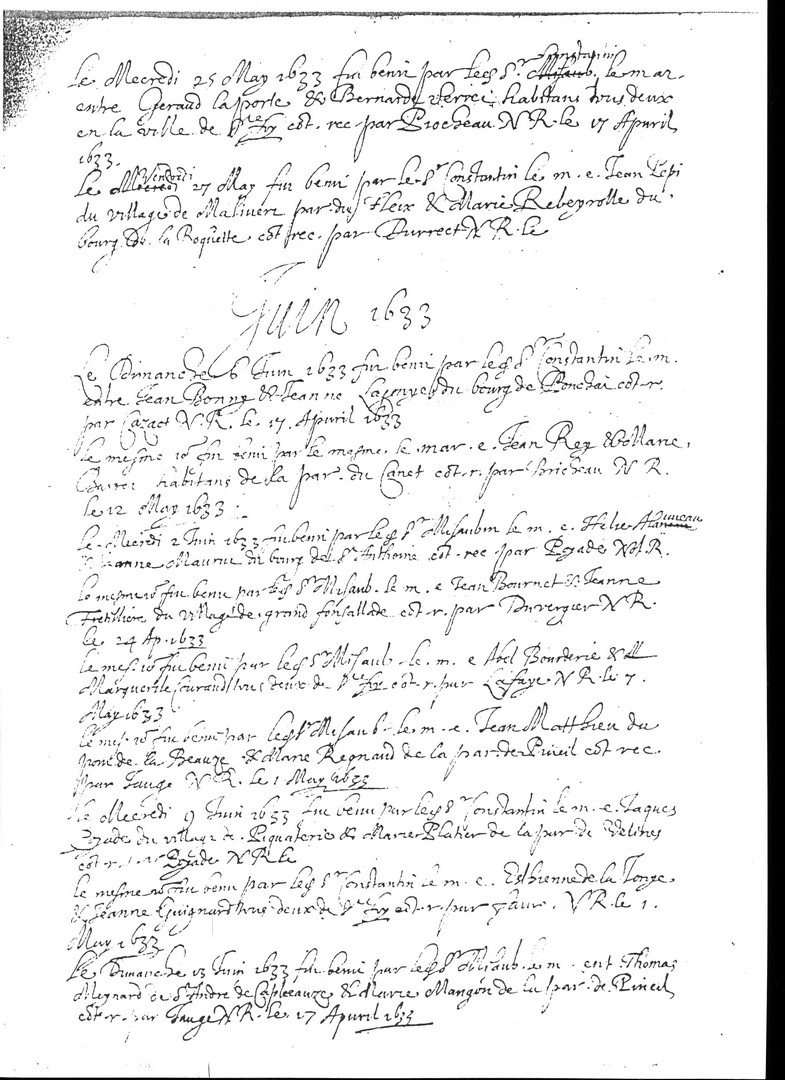 Constantin
Le Mecredi 25 May 1633 fut beni par led Sr Misaub. le mar.
entre Geraud la porte & Bernarde verrier habitans tous deux
en la ville de Ste foy cot. rec. par Piocheau N R. le 17 Apuril
1633.
Vendredi
Le Mecredi 27 May fut beni par le Sr Constantin le m. e. Jean Lespi
du village de Malivert par. du fleix & Marie Rebeyrolle du
bourg de la Roquette cot. rec. par Durrect N R. le
Juin 1633
Le Dimanche 6 Juin 1633 fut beni par led Sr Constantin le m.
entre Jean Bonny & Jeanne du bourg de cot. r.
par Cazact N R. le 17. Apuril 1633
le mesme io fut beni par le mesme le mar. e. Jean Rey & Marie
habitans de la par. du Canet cot. r. par Bricheau N R.
le 12 May 1633
Le Mecredi 2 Juin 1633 fut beni par led Sr Misaubin le m. e. Helie
& Jeanne Maurin du bourg de St Anthoine cot. rec par Pejade N R.
le mesme io fut beni par led Sr Misaub. le m. e Jean Bournet & Jeanne
du village de grand fonsallade cot. r. par Duvergier N R.
le 24 Ap. 1633
le mes. io fut beni par led Sr Misaub. le m. e Abel Bourderie &
Marguerite Durand tous deux de Ste foy cot. r. par Lafaye N R. le 7.
May 1633
le mes. io fut beni par led Sr Misaub. le m. e. Jean Matthieu du
de la Beauze & Marie Regnaud de la par. de Pineil cot rec.
par Fauge N R. le 1 May 1633
le Mecredi 9 Juin 1633 fut beni par led Sr Constantin le m. e. Jaques
Pejade du village de Piquaterie & Marie Platier de la par de Velines
cot. r. par Pejade N R le
le mesme io fut beni par led Sr Constantin le m. e. Esthienne de la Forge
& Jeanne Guignard tous deux de Ste foy cot. r. par faure. N R. le 1.
May 1633
Le Dimanche 13 Juin 1633 fut beni par led Sr Misaub. le m. ent Thomas
Meynard de St Andre de & Marie Mangon de la par. de Pineil
cot. r. par Fauge N R. le 17 Apuril 1633